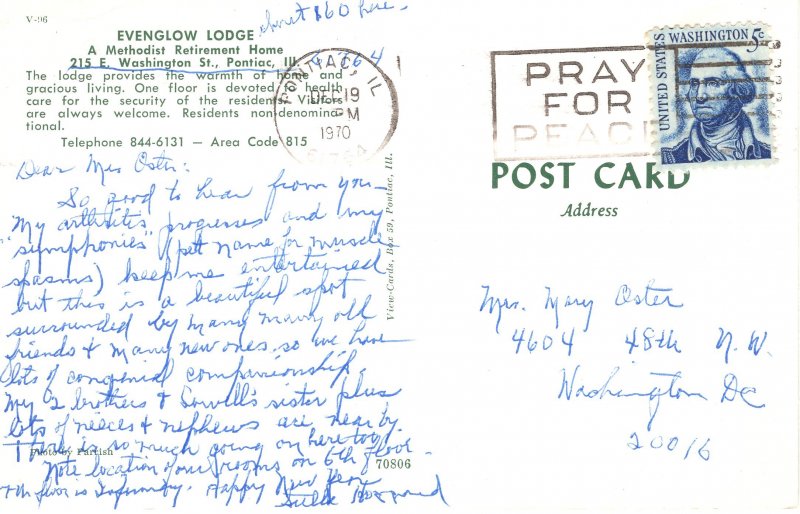 V-96
about 160 here.
EVENGLOW LODGE
A Methodist Retirement Home
215 E. Washington St., Pontiac, Ill. 61764
The lodge provides the warmth of home and
gracious living. One floor is devoted to health
care for the security of the residents. Visitors
are always welcome. Residents nondenomina-
tional.
Telephone 844-6131 — Area Code 815
Dear Mrs Oster:
So good to hear from you—
My arthritis progresses and my
"symphonies" (pet name for muscle
spasms) keep me entertained
but this is a beautiful spot
surrounded by many many old
friends & many new ones, so we have
lots of congenial companionship.
My 2 brothers & Lowell's sister plus
lots of neices & nephews are near by.
There is so much going on here too.
Photo by Parrish
Note location of our rooms on 6th floor
7th floor is Infirmary. Happy New Year
70806
View-Cards, Box 59, Pontiac, Ill.
PONTIAC, IL
DEC 19
PM
1970
61764
PRAY
FOR
PEACE
UNITED STATES
WASHINGTON 5c
POST CARD
Address
Mrs. Mary Oster
4604 48th N.W.
Washington DC
20016